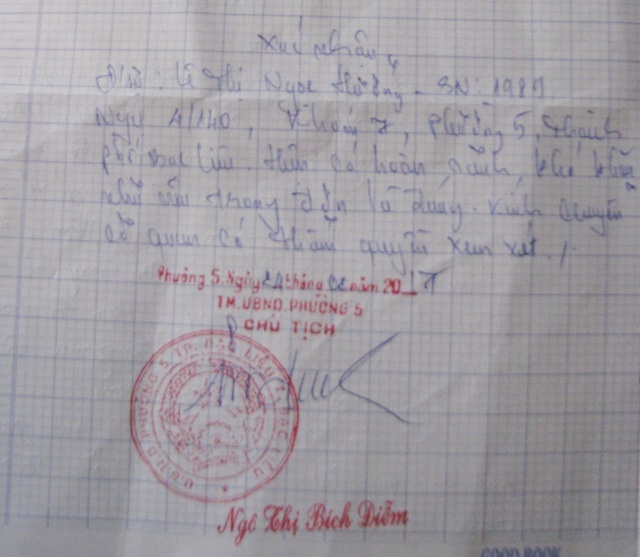 Xác nhận
Chị: Lê Thị Ngọc Hường - SN: 1989
Ngụ 4/140, Khóm 7, phường 5, thành
phố Bạc Liêu. Hiện có hoàn cảnh, khó khăn
như nêu trong đơn là đúng. Kính chuyển
cơ quan có thẩm quyền xem xét./.
Phường 5, Ngày 24 tháng 02 năm 2017
TM.UBND.PHƯỜNG 5
CHỦ TỊCH
U.B.N.D PHƯỜNG 5 TP. BẠC LIÊU T. BẠC LIÊU
Ngô Thị Bích Diễm
GOOD BOOK